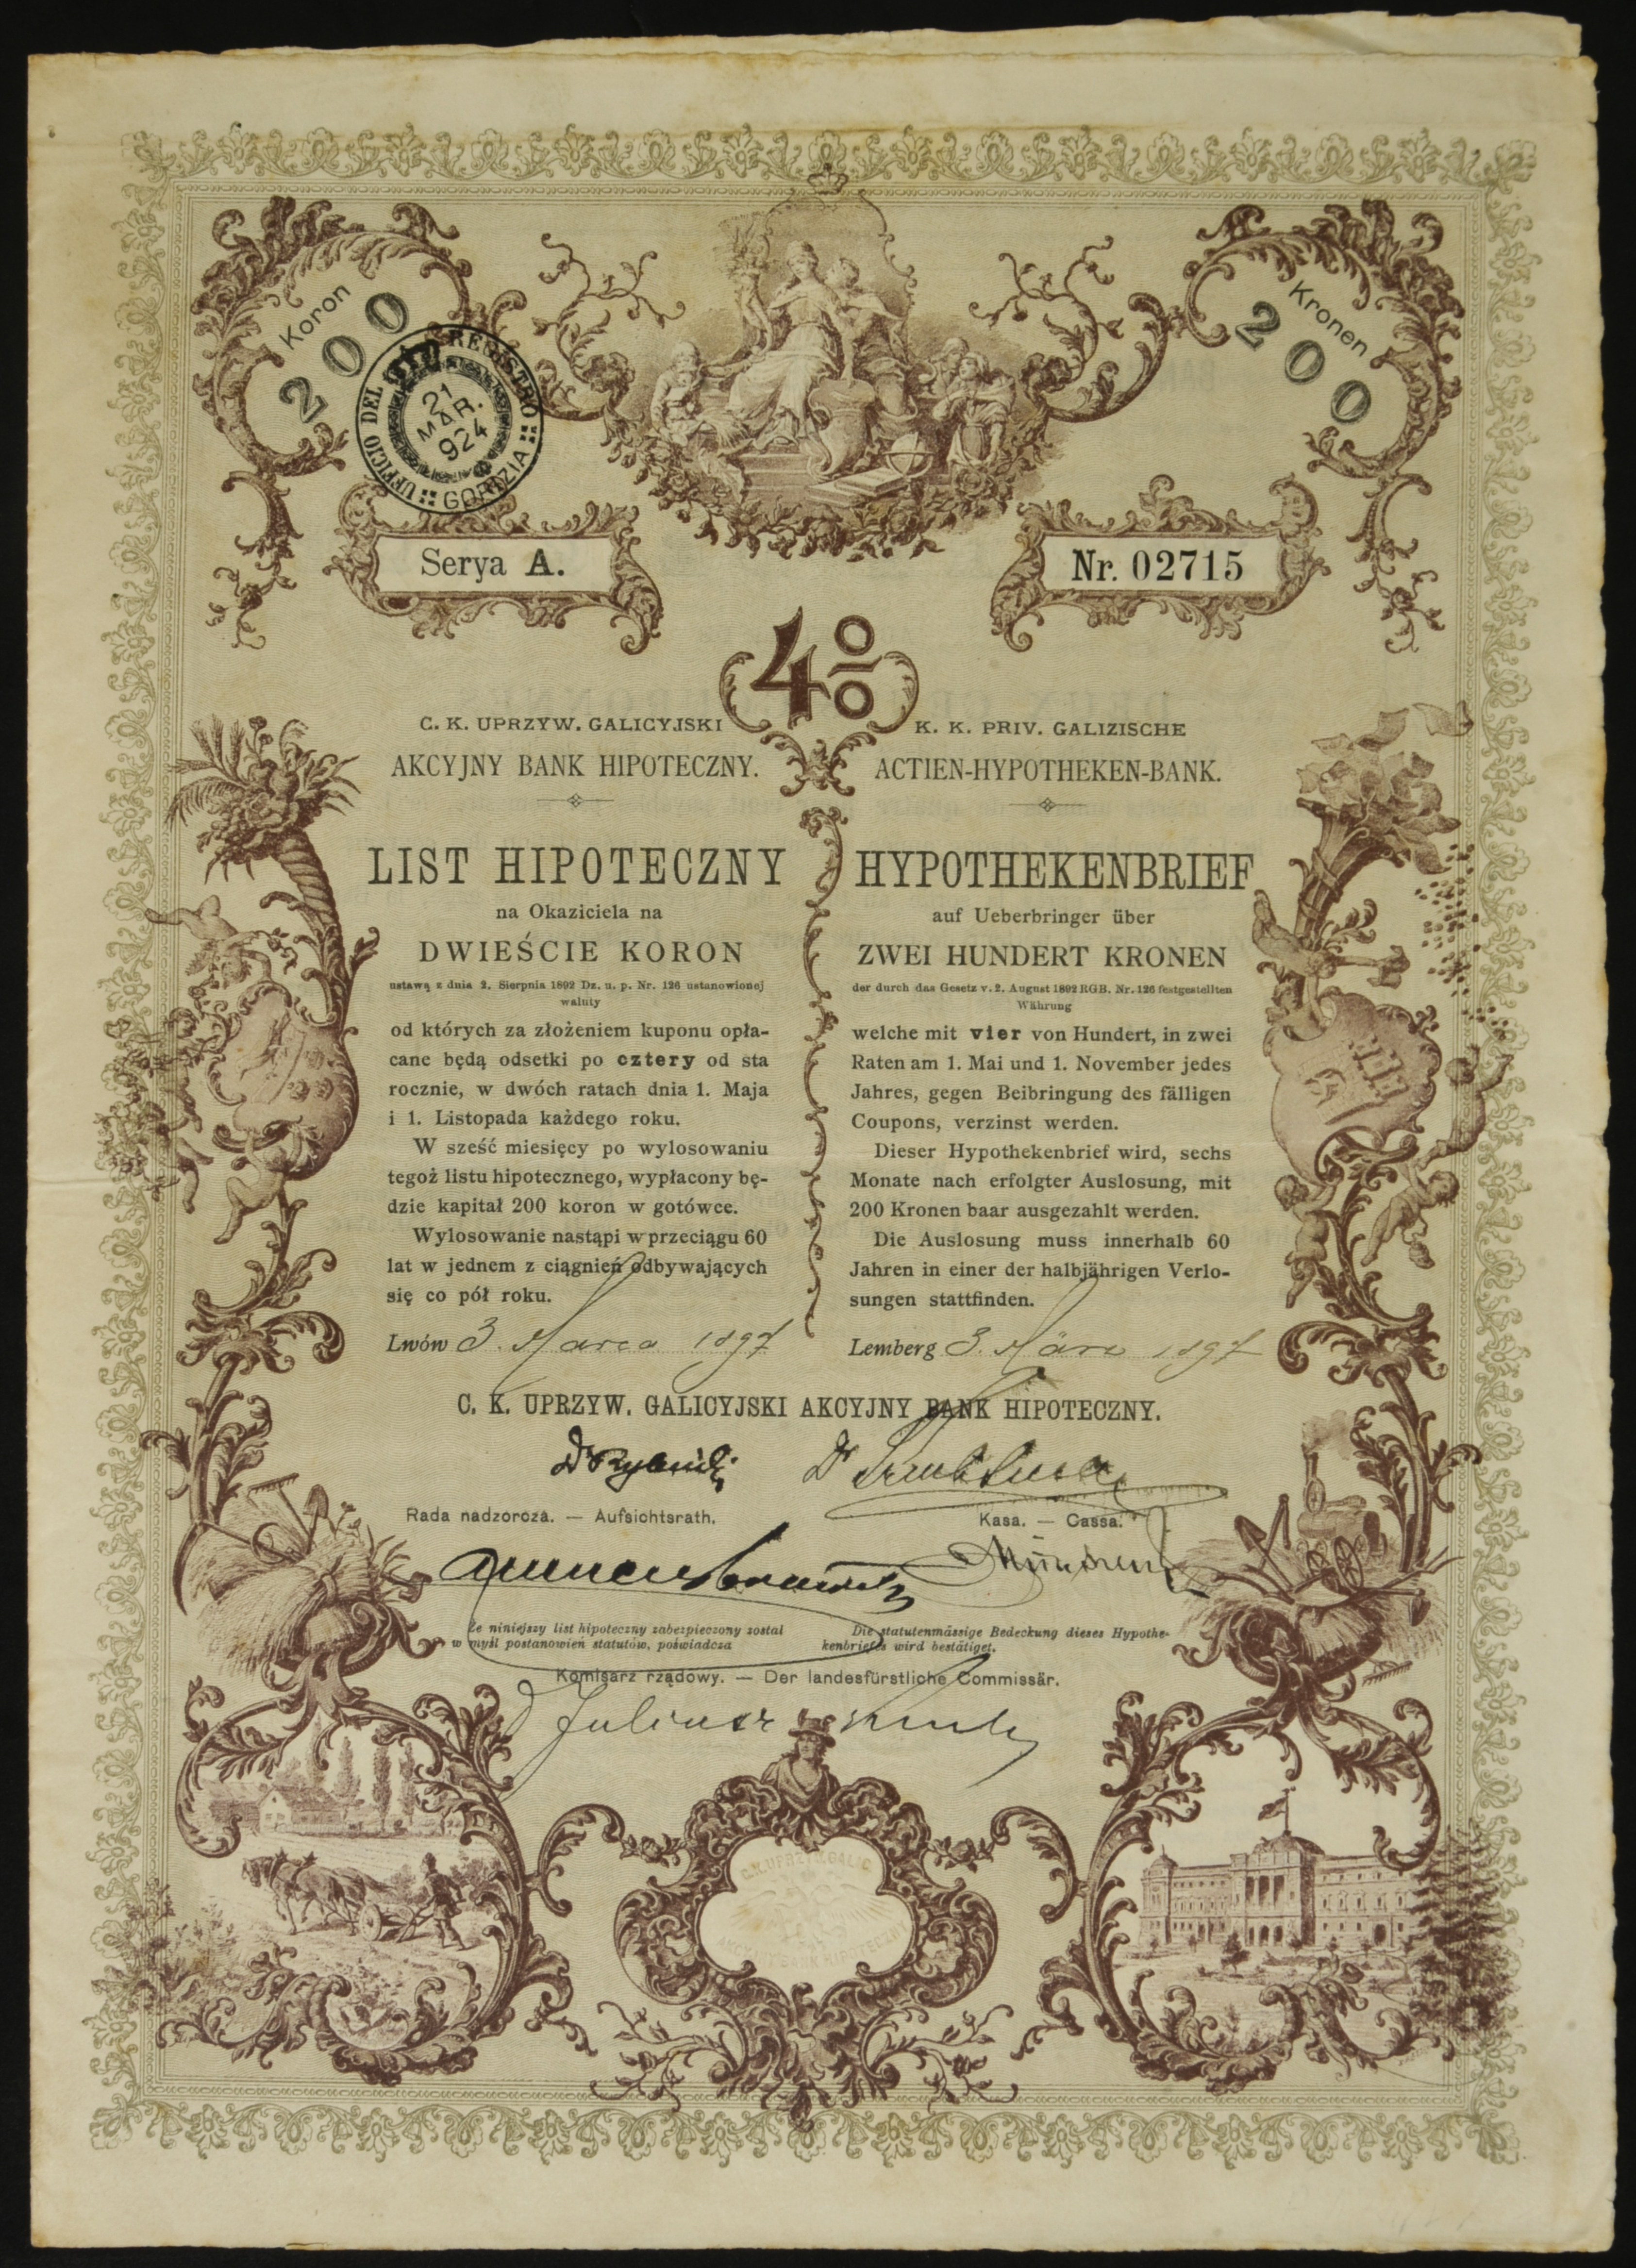 Koron
200
Kronen
200
UFFICIO DEL REGISTRO
GORIZIA
21
MAR.
924
Serya A.
Nr. 02715
4%
C. K. UPRZYW. GALICYJSKI
AKCYJNY BANK HIPOTECZNY.
LIST HIPOTECZNY
na Okaziciela na
DWIEŚCIE KORON
ustawą z dnia 2. Sierpnia 1892 Dz. u. p. Nr. 126 ustanowionej
waluty
od których za złożeniem kuponu opła-
cane będą odsetki po cztery od sta
rocznie, w dwóch ratach dnia 1. Maja
i 1. Listopada każdego roku.
W sześć miesięcy po wylosowaniu
tegoż listu hipotecznego, wypłacony bę-
dzie kapitał 200 koron w gotówce.
Wylosowanie nastąpi w przeciągu 60
lat w jednem z ciągnień odbywających
się co pół roku.
Lwów 3. Marca 1897
K. K. PRIV. GALIZISCHE
ACTIEN-HYPOTHEKEN-BANK.
HYPOTHEKENBRIEF
auf Ueberbringer über
ZWEI HUNDERT KRONEN
der durch das Gesetz v. 2. August 1892 RGB. Nr. 126 festgestellten
Währung
welche mit vier von Hundert, in zwei
Raten am 1. Mai und 1. November jedes
Jahres, gegen Beibringung des fälligen
Coupons, verzinst werden.
Dieser Hypothekenbrief wird, sechs
Monate nach erfolgter Auslosung, mit
200 Kronen baar ausgezahlt werden.
Die Auslosung muss innerhalb 60
Jahren in einer der halbjährigen Verlo-
sungen stattfinden.
Lemberg 3. März 1897
C. K. UPRZYW. GALICYJSKI AKCYJNY BANK HIPOTECZNY.
Rada nadzorcza. — Aufsichtsrath.
Kasa. — Cassa.
Że niniejszy list hipoteczny zabezpieczony został
w myśl postanowień statutów, poświadcza
Die statutenmässige Bedeckung dieses Hypothe-
kenbriefes wird bestätiget.
Komisarz rządowy. — Der landesfürstliche Commissär.
Juliusz
C. K. UPRZYW. GALIC.
AKCYJNY BANK HIPOTECZNY